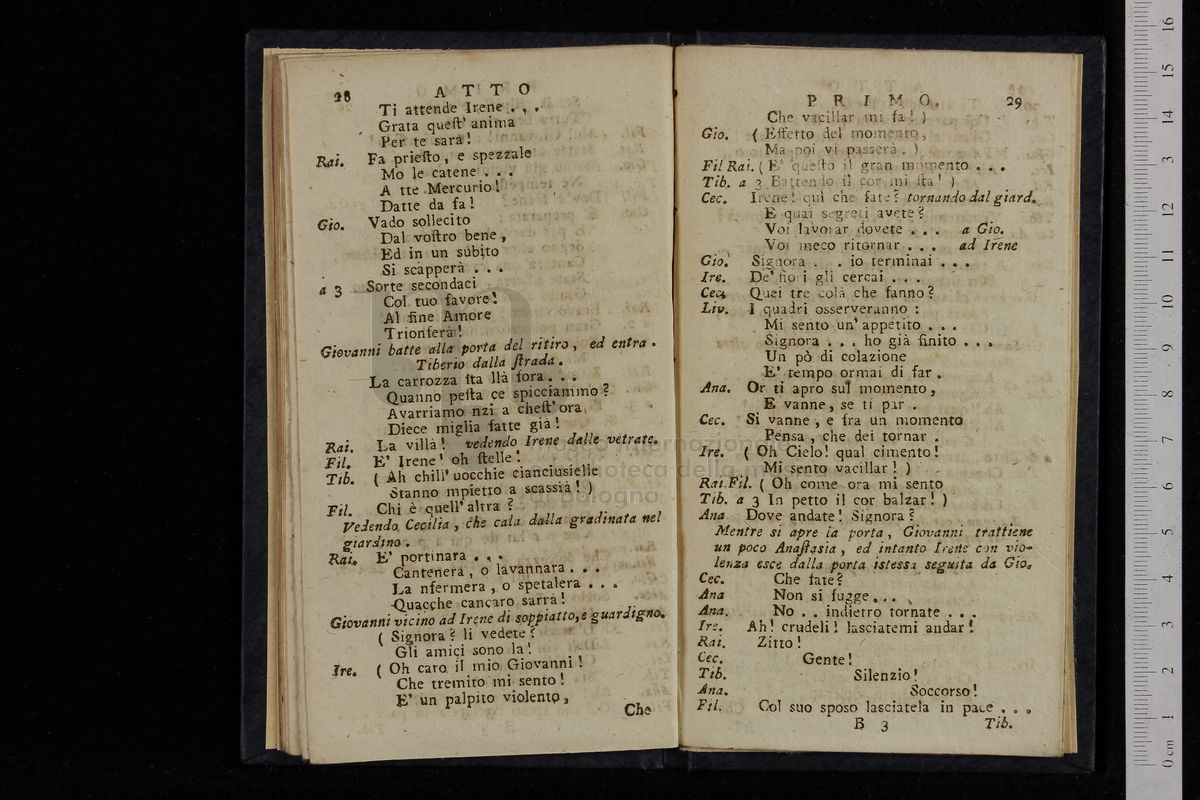 28 ATTO
Ti attende Irene . . .
Grata quest' anima
Per te sarà!
Rai. Fa priesto, e spezzale
Mo le catene . . .
A tte Mercurio!
Datte da fa!
Gio. Vado sollecito
Dal vostro bene,
Ed in un subito
Si scapperà . . .
a 3 Sorte secondaci
Col tuo favore!
Al fine Amore
Trionferà!
Giovanni batte alla porta del ritiro, ed entra.
Tiberio dalla strada.
La carrozza sta llà fora . . .
Quanno pesta ce spicciammo?
Avarriamo nzi a chest' ora
Diece miglia fatte già!
Rai. La villà! vedendo Irene dalle vetrate.
Fil. E' Irene! oh stelle!
Tib. ( Ah chill' uocchie cianciusielle
Stanno mpietto a scassià! )
Fil. Chi è quell' altra?
Vedendo Cecilia, che cala dalla gradinata nel
giardino.
Rai. E' portinara . . .
Cantenera, o lavannara . . .
La nfermera, o spetalera . . .
Quacche cancaro sarrà!
Giovanni vicino ad Irene di soppiatto, e guardigno.
( Signora? li vedete?
Gli amici sono la!
Ire. ( Oh caro il mio Giovanni!
Che tremito mi sento!
E' un palpito violento,
Che
PRIMO. 29
Che vacillar mi fa! )
Gio. ( Effetto del momento,
Ma poi vi passerà. )
Fil Rai. ( E' questo il gran momento . . .
Tib. a 3 Battendo il cor mi sta! )
Cec. Irene! quì che fate? tornando dal giard.
E quai segreti avete?
Voi lavorar dovete . . . a Gio.
Voi meco ritornar . . . ad Irene
Gio. Signora . . . io terminai . . .
Ire. De' fiori gli cercai . . .
Cec. Quei tre colà che fanno?
Liv. I quadri osserveranno:
Mi sento un' appetito . . .
Signora . . . ho già finito . . .
Un pò di colazione
E' tempo ormai di far.
Ana. Or ti apro sul momento,
E vanne, se ti par.
Cec. Si vanne, e fra un momento
Pensa, che dei tornar.
Ire. ( Oh Cielo! qual cimento!
Mi sento vacillar! )
Rai. Fil. ( Oh come ora mi sento
Tib. a 3 In petto il cor balzar! )
Ana Dove andate! Signora?
Mentre si apre la porta, Giovanni trattiene
un poco Anastasia, ed intanto Irene con vio-
lenza esce dalla porta istessa seguita da Gio.
Cec. Che fate?
Ana Non si fugge . . .
Ana. No . . indietro tornate . . .
Ire. Ah! crudeli! lasciatemi andar!
Rai. Zitto!
Cec. Gente!
Tib. Silenzio!
Ana. Soccorso!
Fil. Col suo sposo lasciatela in pace . . .
B 3 Tib.
0 cm 1 2 3 4 5 6 7 8 9 10 11 12 13 14 15 16